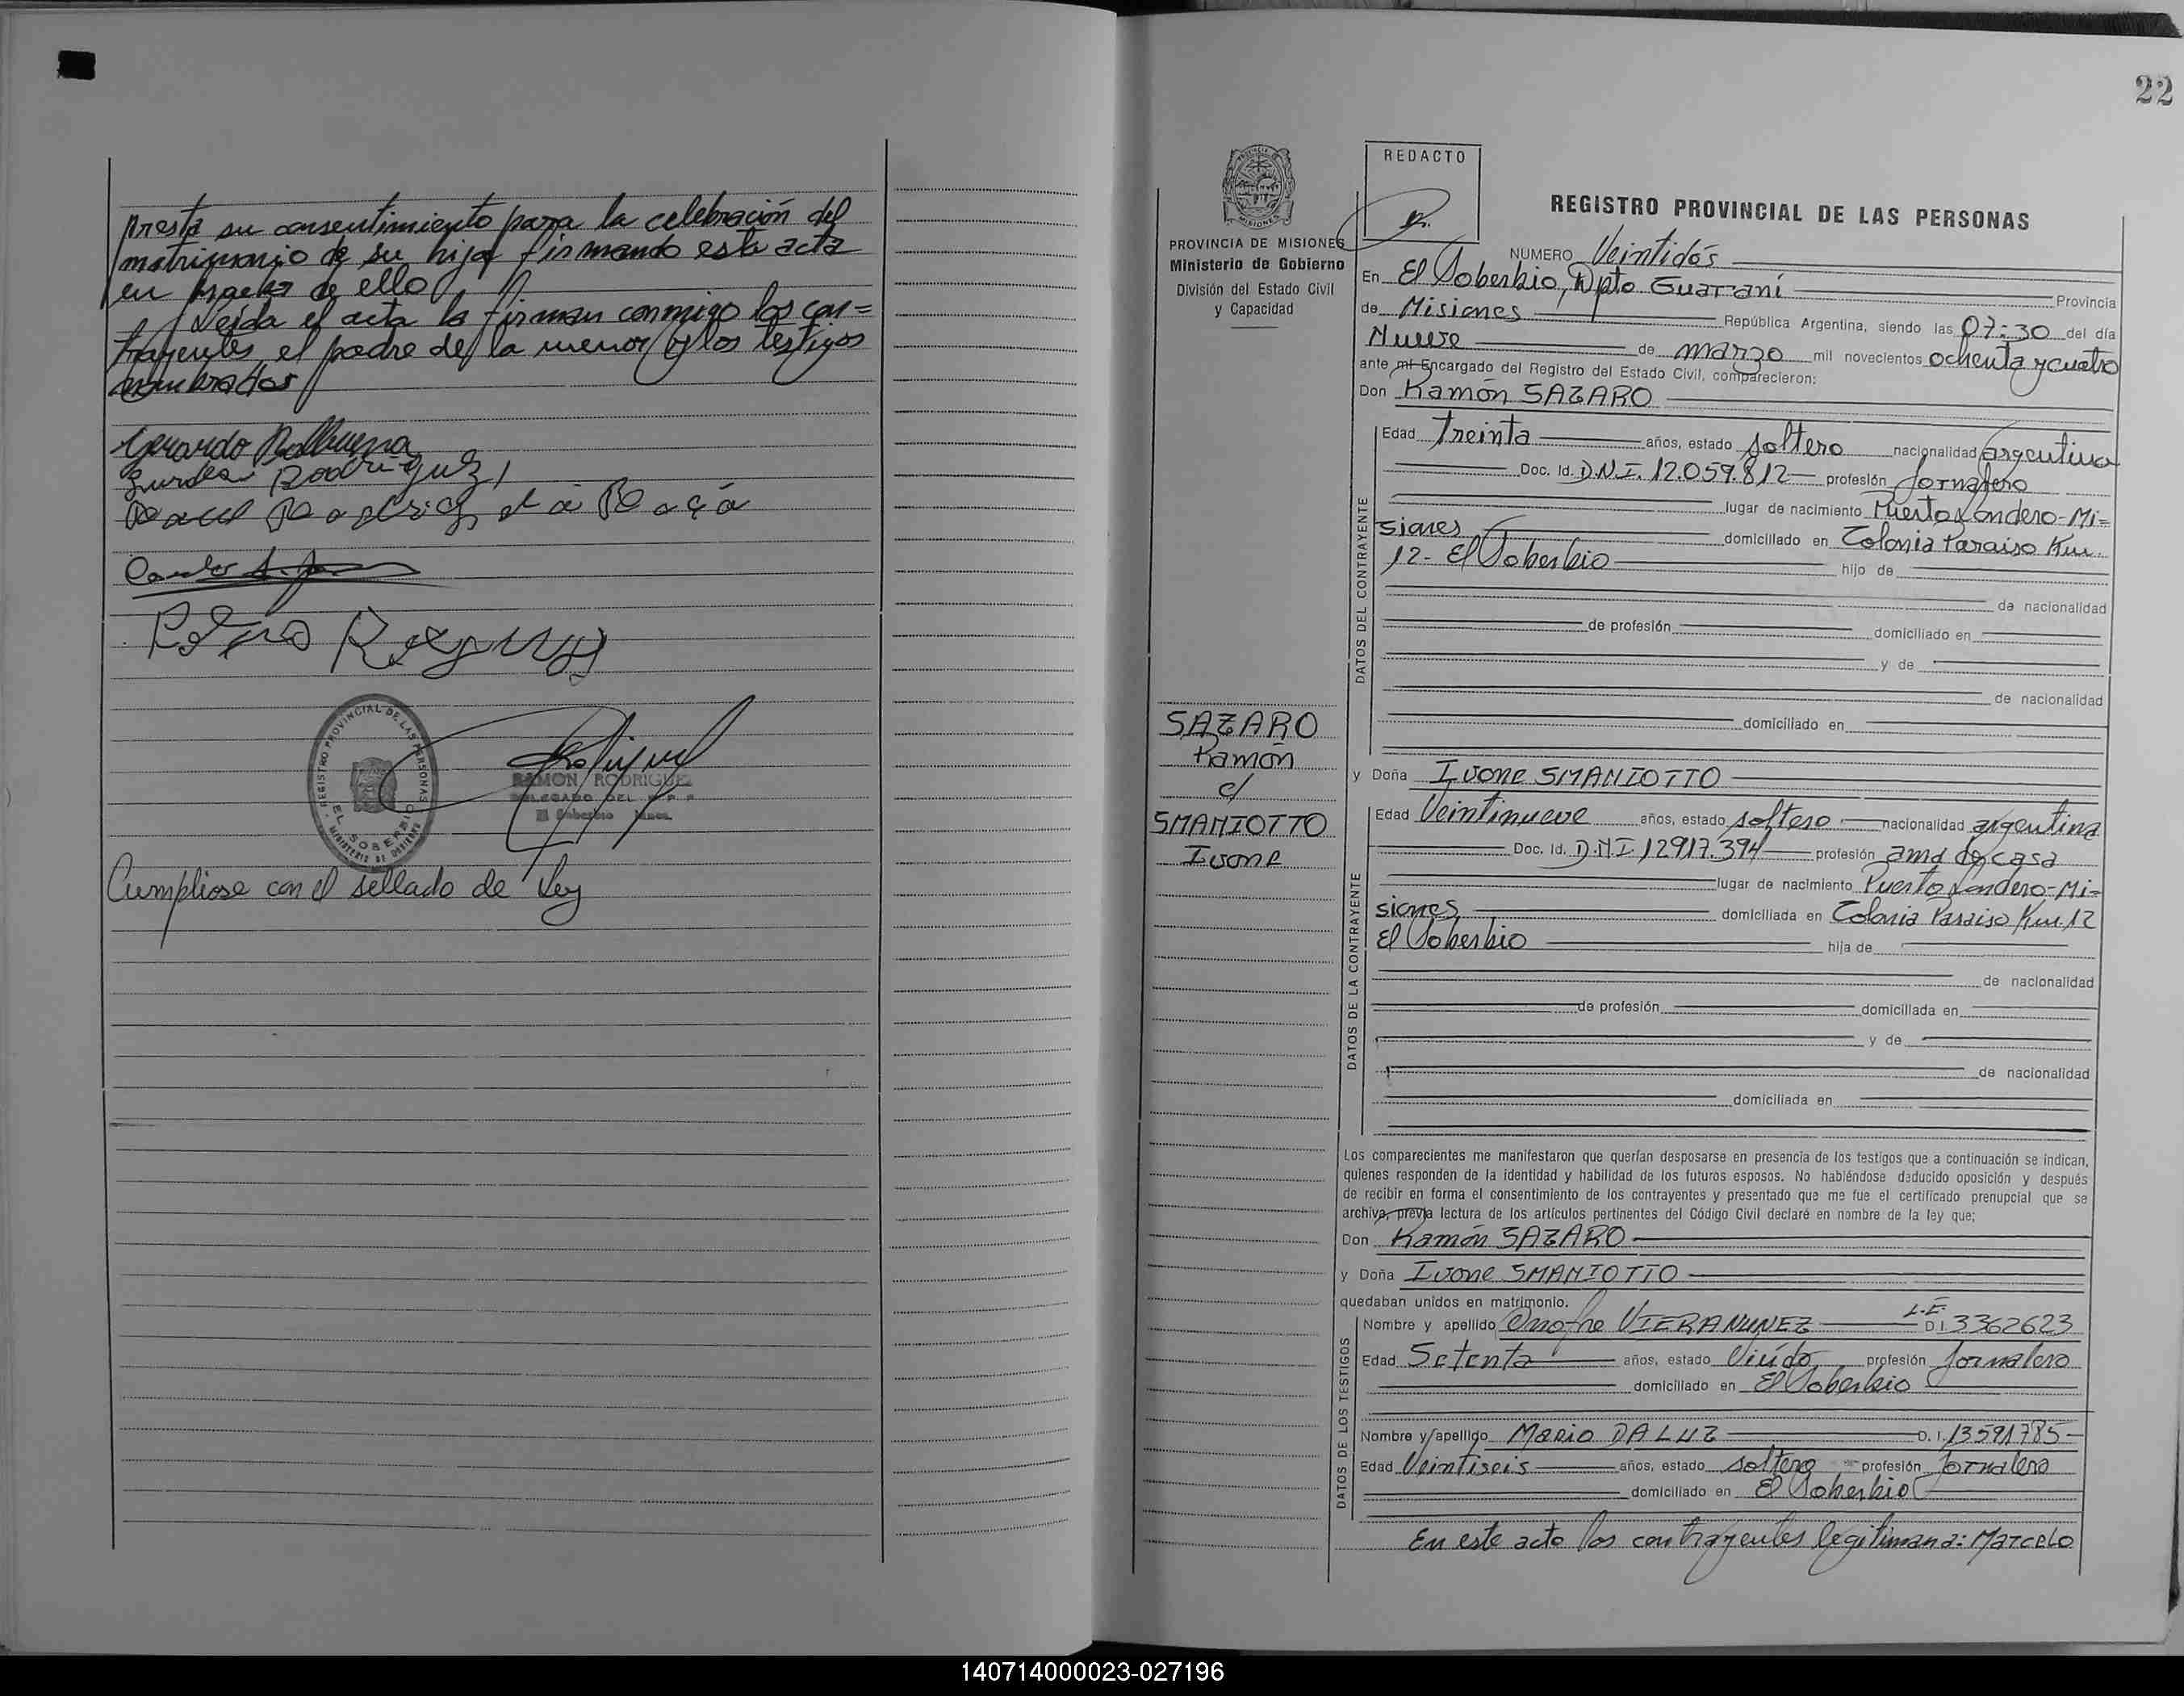 presta su consentimiento para la celebración del
matrimonio de su hija firmando esta acta
en prueba de ello
Leida el acta la firman conmigo los con=
trayentes, el padre de la menor y los testigos
nombrados
Gerardo Balbuena
Rodriguez
REGISTRO PROVINCIAL DE LAS PERSONAS
EL SOBERBIO
MINISTERIO DE GOBIERNO
RAMON RODRIGUEZ
DELEGADO DEL R P P
El Soberbio Mnes.
Cumpliose con el sellado de Ley
22
PROVINCIA DE MISIONES
Ministerio de Gobierno
División del Estado Civil
y Capacidad
SAZARO
Ramón
c/
SMANIOTTO
Ivone
REDACTO
REGISTRO PROVINCIAL DE LAS PERSONAS
NUMERO Veintidós
En El Soberbio, Dpto Guaraní Provincia
de Misiones República Argentina, siendo las 07:30 del día
Nueve de marzo mil novecientos ochenta y cuatro
ante mí Encargado del Registro del Estado Civil, comparecieron:
Don Ramón SAZARO
DATOS DEL CONTRAYENTE
Edad Treinta años, estado soltero nacionalidad argentina
Doc. Id. D.N.I. 12.059.812 profesión Jornalero
lugar de nacimiento Puerto Londero-Mi=
siones domiciliado en Colonia Paraiso Km.
12- El Soberbio hijo de
de nacionalidad
de profesión domiciliado en
y de
de nacionalidad
domiciliado en
y Doña Ivone SMANIOTTO
DATOS DE LA CONTRAYENTE
Edad Veintinueve años, estado soltera nacionalidad argentina
Doc. Id. D.N.I 12917.394 profesión ama de casa
lugar de nacimiento Puerto Londero-Mi=
siones domiciliada en Colonia Paraiso Km.12
El Soberbio hija de
de nacionalidad
de profesión domiciliada en
y de
de nacionalidad
domiciliada en
Los comparecientes me manifestaron que querían desposarse en presencia de los testigos que a continuación se indican,
quienes responden de la identidad y habilidad de los futuros esposos. No habiéndose deducido oposición y después
de recibir en forma el consentimiento de los contrayentes y presentado que me fue el certificado prenupcial que se
archiva, previa lectura de los artículos pertinentes del Código Civil declaré en nombre de la ley que;
Don Ramón SAZARO
y Doña Ivone SMANIOTTO
quedaban unidos en matrimonio.
DATOS DE LOS TESTIGOS
Nombre y apellido Onofre VIERA NUNEZ L.E. D.I. 3362623
Edad Setenta años, estado Viudo profesión Jornalero
domiciliado en El Soberbio
Nombre y apellido Mario DA LUZ D.I. 13591785
Edad Veintiseis años, estado soltero profesión Jornalero
domiciliado en El Soberbio
En este acto los contrayentes legitiman a: Marcelo
140714000023-027196